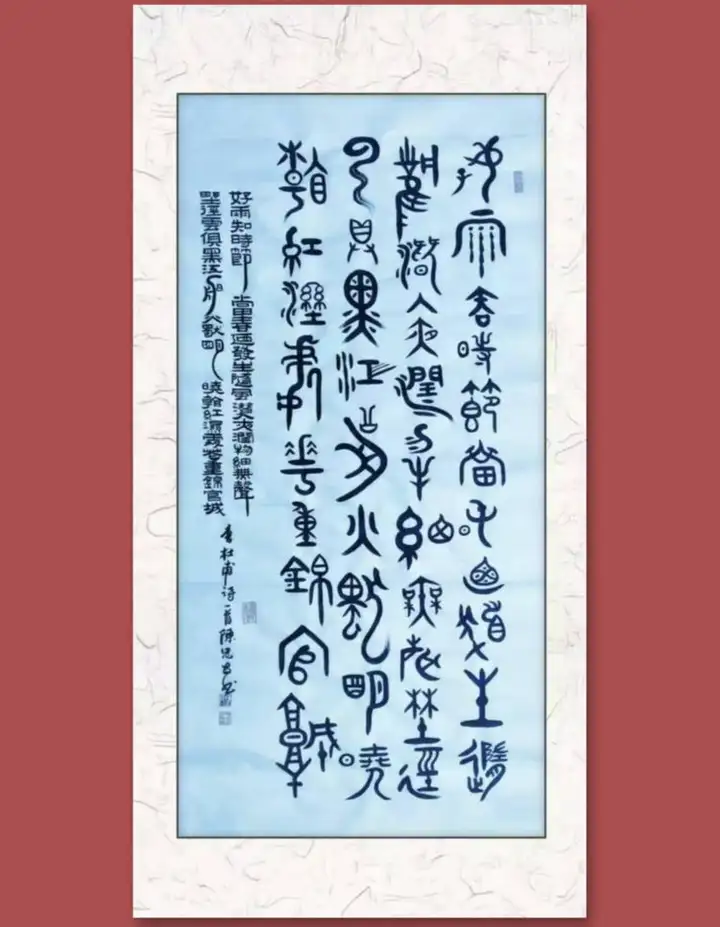 好雨知時節當春乃發生隨
風潛入夜潤物細無聲野徑
雲俱黑江船火獨明曉
看紅濕處花重錦官城
好雨知時節當春廼發生隨風潛入夜潤物細無聲
野徑雲俱黑江船火獨明曉看紅濕處花重錦官城
書杜甫诗一首陳